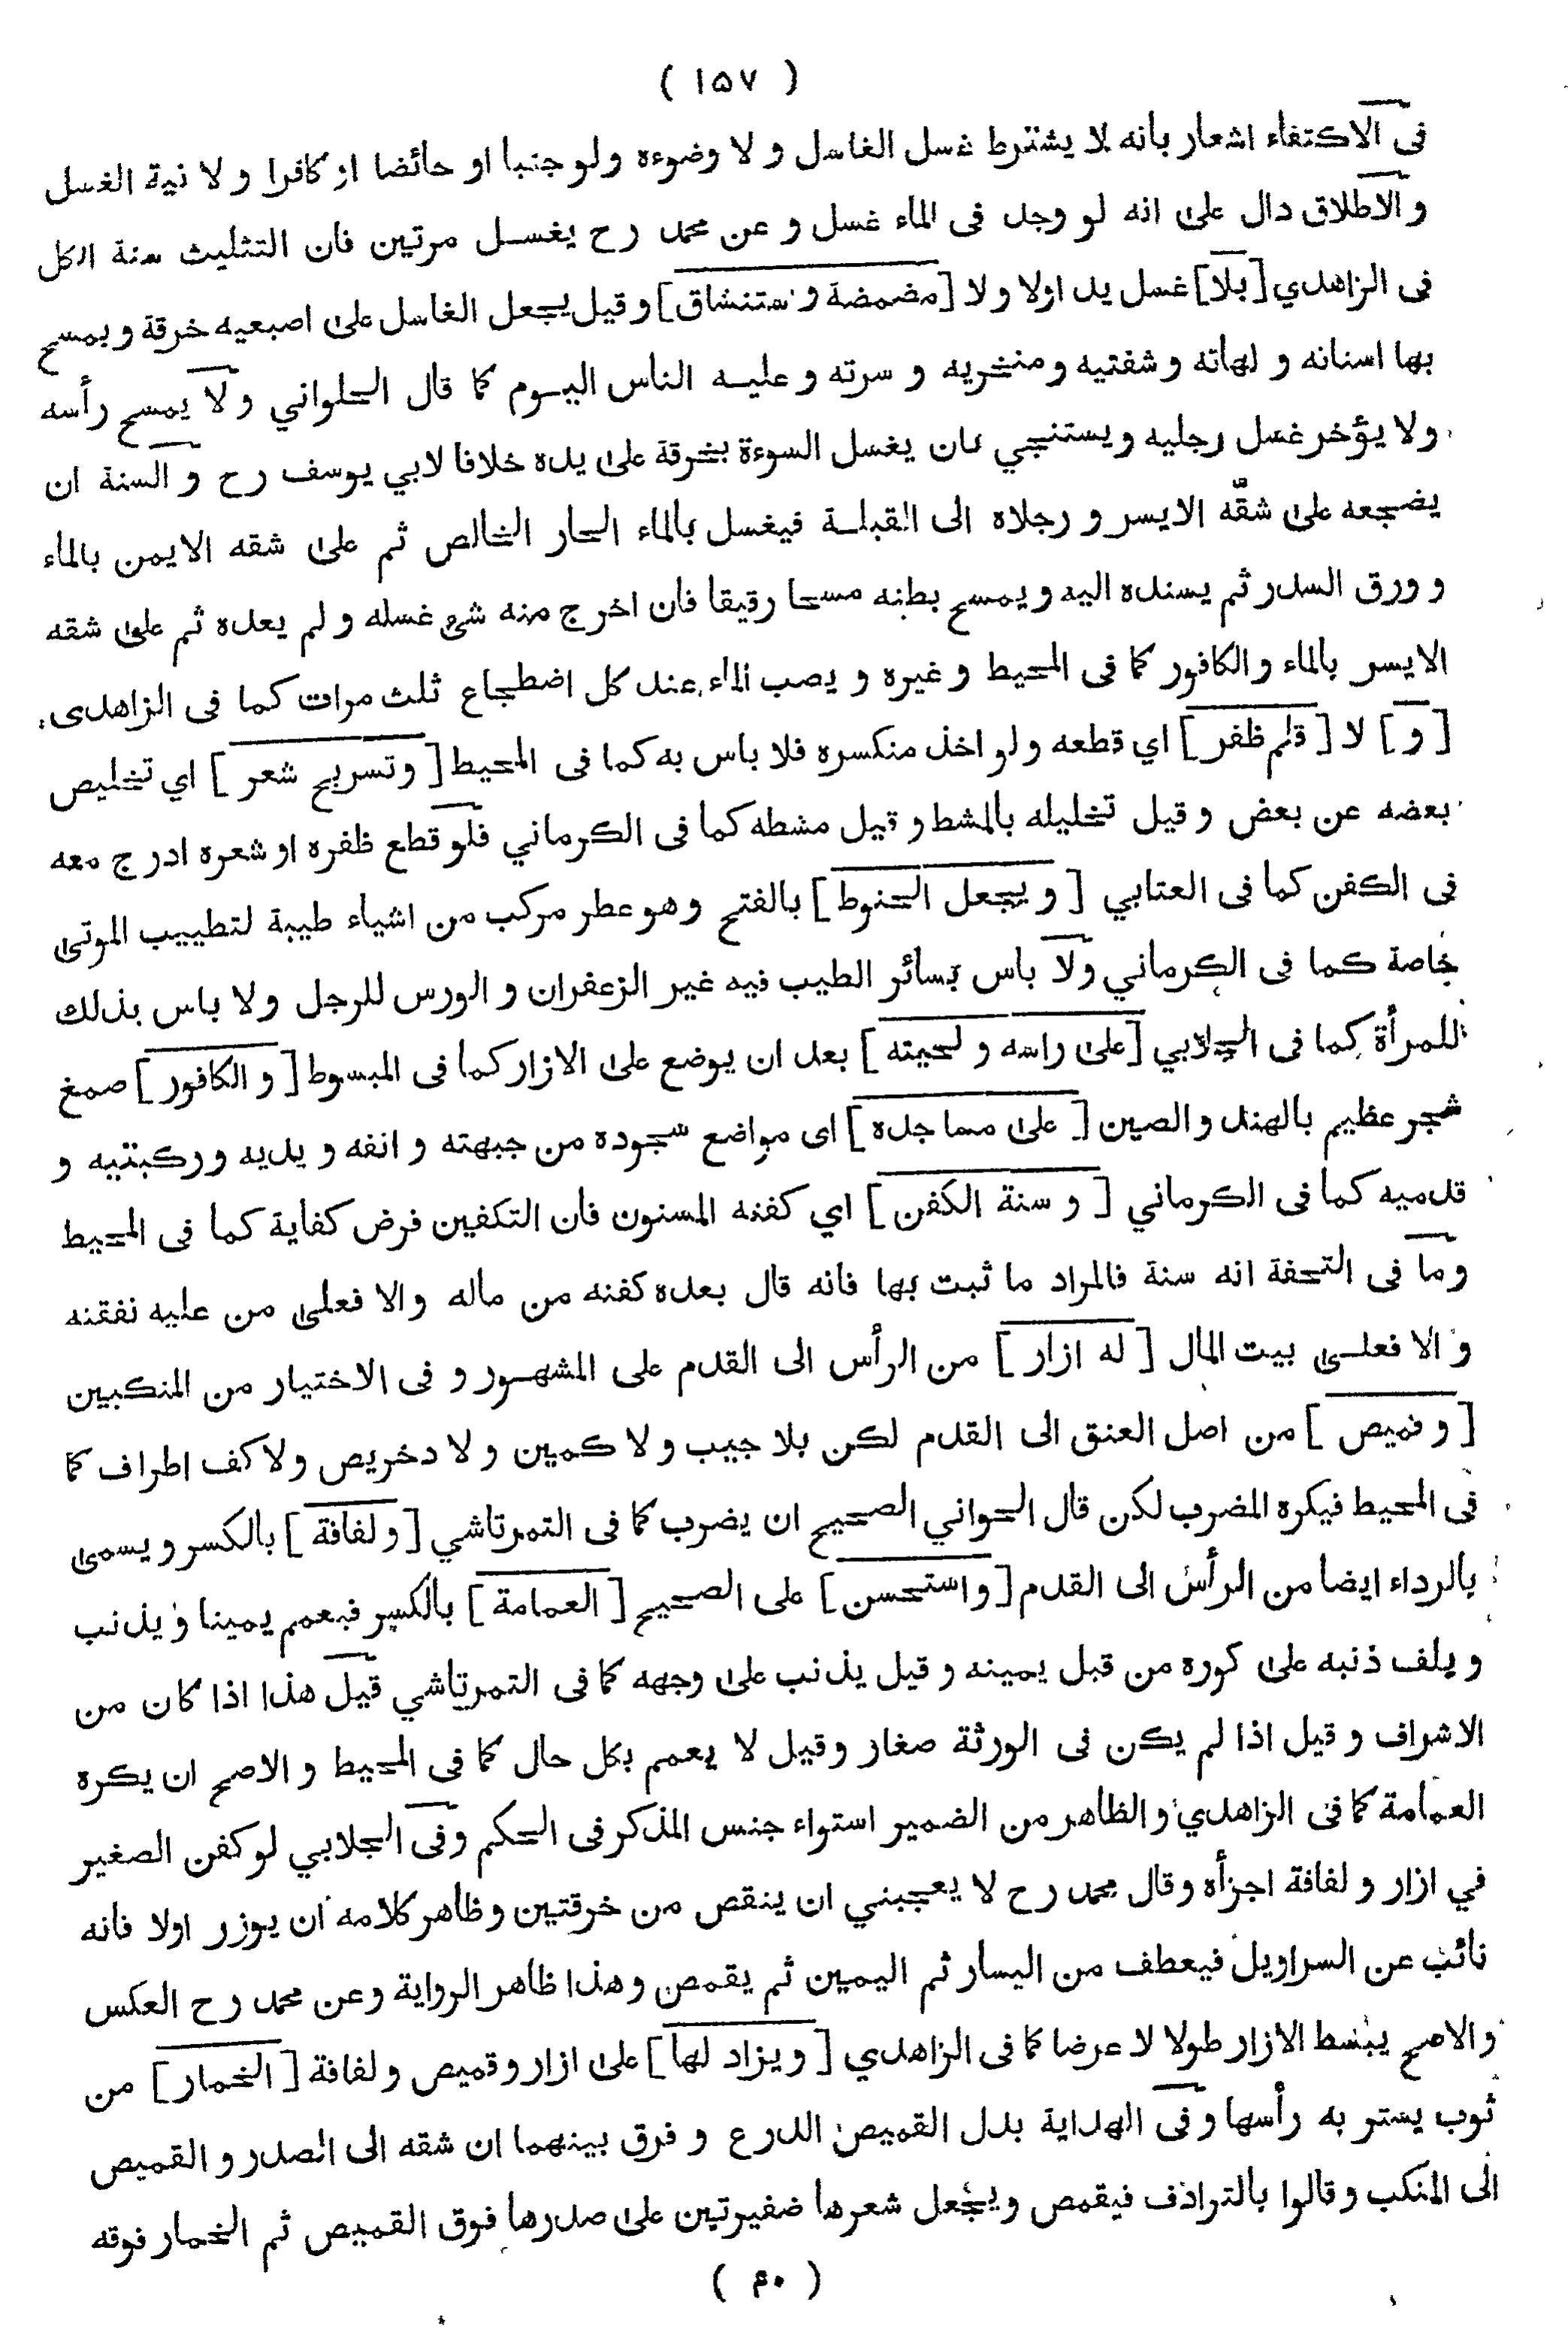 ( ١٥٧ )
فى الاكتفاء اشعار بانه لا يشترط غسل الغاسل و لا وضوءه ولو جنبا او حائضا او كافرا و لا نية الغسل
و الاطلاق دال على انه لو وجد فى الماء غسل و عن محمد رح يغسل مرتين فان التثليث سنة الكل
فى الزاهدي [بلا] غسل يد اولا و لا [مضمضة و ستنشاق] و قيل يجعل الغاسل على اصبعيه خرقة و يمسح
بها اسنانه و لهاته و شفتيه و منخريه و سرته و عليه الناس اليوم كما قال الحلواني و لا يمسح رأسه
ولا يؤخر غسل رجليه ويستنجي بان يغسل السوءة بخرقة على يده خلافا لابي يوسف رح و السنة ان
يضجعه على شقّه الايسر و رجلاه الى القبلة فيغسل بالماء الحار الخالص ثم على شقه الايمن بالماء
و ورق السدر ثم يسنده اليه و يمسح بطنه مسحا رقيقا فان اخرج منه شئ غسله و لم يعده ثم على شقه
الايسر بالماء و الكافور كما فى المحيط و غيره و يصب الماء عند كل اضطجاع ثلث مرات كما فى الزاهدى
[و] لا [قلم ظفر] اي قطعه و لو اخذ منكسره فلا باس به كما فى المحيط [وتسريح شعر] اي تخليص
بعضه عن بعض و قيل تخليله بالمشط و قيل مشطه كما فى الكرماني فلو قطع ظفره او شعره ادرج معه
فى الكفن كما فى العتابي [و يجعل الحنوط] بالفتح و هو عطر مركب من اشياء طيبة لتطييب الموتى
خاصة كما فى الكرماني ولا باس بسائر الطيب فيه غير الزعفران و الورس للرجل ولا باس بذلك
للمرأة كما فى الجلابي [على راسه و لحيته] بعد ان يوضع على الازار كما فى المبسوط [و الكافور] صمغ
شجر عظيم بالهند و الصين [على مساجده] اى مواضع سجوده من جبهته و انفه و يديه و ركبتيه و
قدميه كما فى الكرماني [و سنة الكفن] اي كفنه المسنون فان التكفين فرض كفاية كما فى المحيط
وما فى التحفة انه سنة فالمراد ما ثبت بها فانه قال بعده كفنه من ماله والا فعلى من عليه نفقته
و الا فعلى بيت المال [له ازار] من الرأس الى القدم على المشهور و فى الاختيار من المنكبين
[و قميص] من اصل العنق الى القدم لكن بلا جيب و لا كمين و لا دخريص ولا كف اطراف كما
فى المحيط فيكره المضرب لكن قال الحواني الصحيح ان يضرب كما فى التمرتاشي [و لفافة] بالكسر و يسمى
بالرداء ايضا من الرأس الى القدم [و استحسن] على الصحيح [العمامة] بالكسر فيعمم يمينا و يذنب
و يلف ذنبه على كوره من قبل يمينه و قيل يذنب على وجهه كما فى التمرتاشي قيل هذا اذا كان من
الاشراف و قيل اذا لم يكن فى الورثة صغار و قيل لا يعمم بكل حال كما فى المحيط و الاصح ان يكره
العمامة كما فى الزاهدي و الظاهر من الضمير استواء جنس المذكر فى الحكم و فى الجلابي لو كفن الصغير
في ازار و لفافة اجزأه وقال محمد رح لا يعجبني ان ينقص من خرقتين و ظاهر كلامه ان يوزر اولا فانه
نائب عن السراويل فيعطف من اليسار ثم اليمين ثم يقمص وهذا ظاهر الرواية وعن محمد رح العكس
والاصح يبسط الازار طولا لا عرضا كما فى الزاهدي [و يزاد لها] على ازار و قميص و لفافة [الخمار] من
ثوب يستر به رأسها و فى الهداية بدل القميص الدرع و فرق بينهما ان شقه الى الصدر و القميص
الى المنكب و قالوا بالترادف فيقمص ويجعل شعرها ضفيرتين على صدرها فوق القميص ثم الخمار فوقه
( ۴۰ )